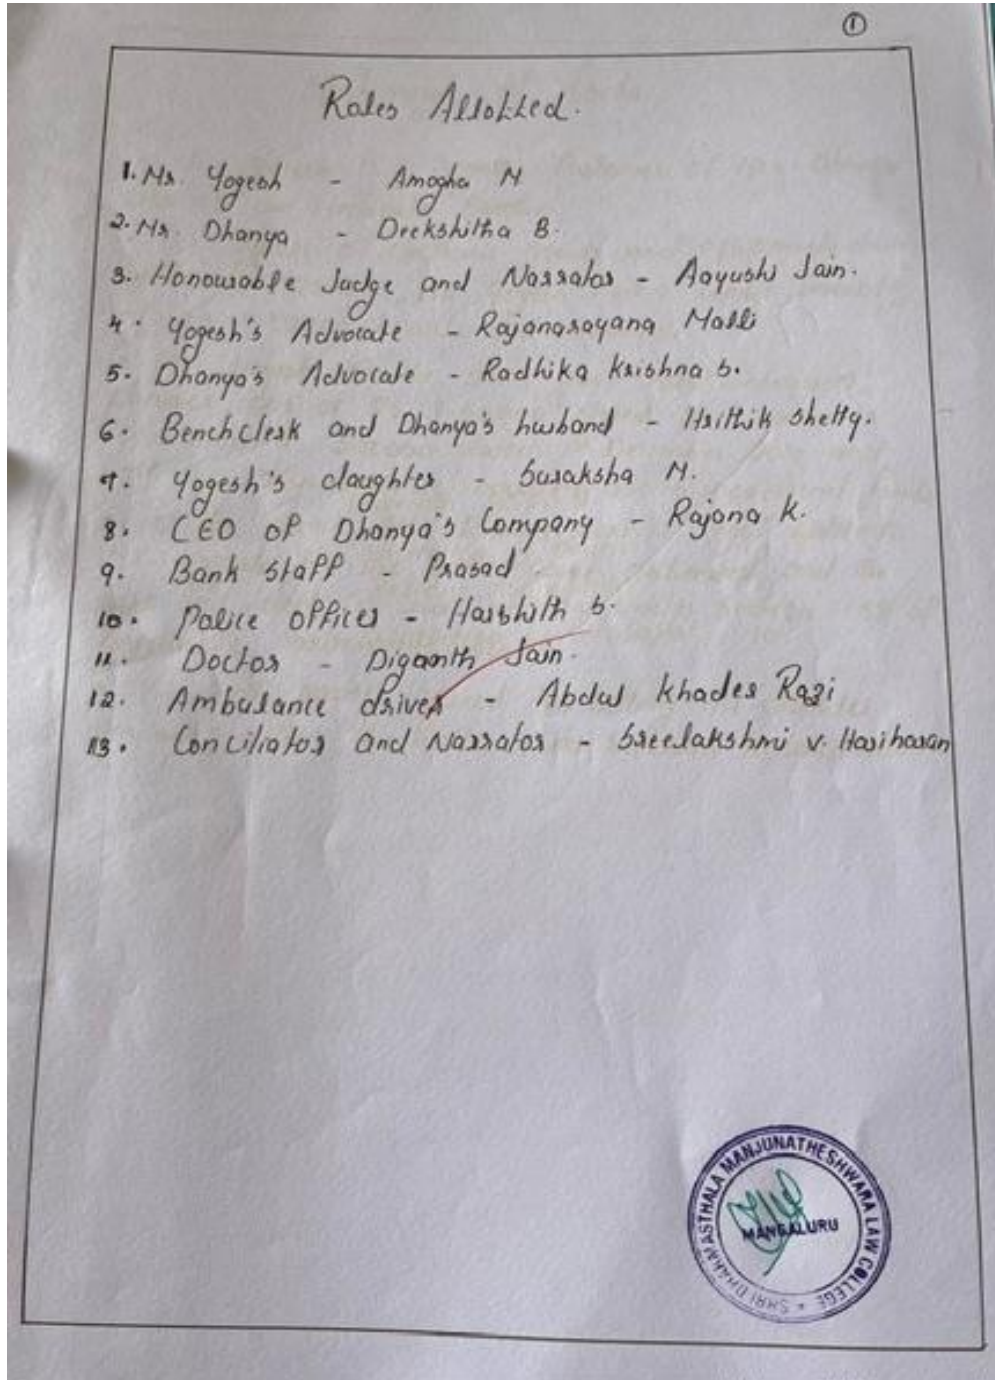 1
Roles Allotted.
1. Mr. Yogesh - Amogha M
2. Mr. Dhanya - Deekshitha B.
3. Honourable Judge and Narrator - Aayushi Jain.
4. Yogesh's Advocate - Rajanarayana Malli
5. Dhanya's Advocate - Radhika Krishna S.
6. Bench clerk and Dhanya's husband - Hrithik Shetty.
7. Yogesh's daughter - Suraksha M.
8. CEO of Dhanya's Company - Rajana K.
9. Bank staff - Prasad.
10. Police officer - Harshith S.
11. Doctor - Diganth Jain.
12. Ambulance driver - Abdul Khader Razi
13. Conciliator and Narrator - Sreelakshmi V. Hariharan
SHRI DHARMASTHALA MANJUNATHESHWARA LAW COLLEGE *
MANGALURU